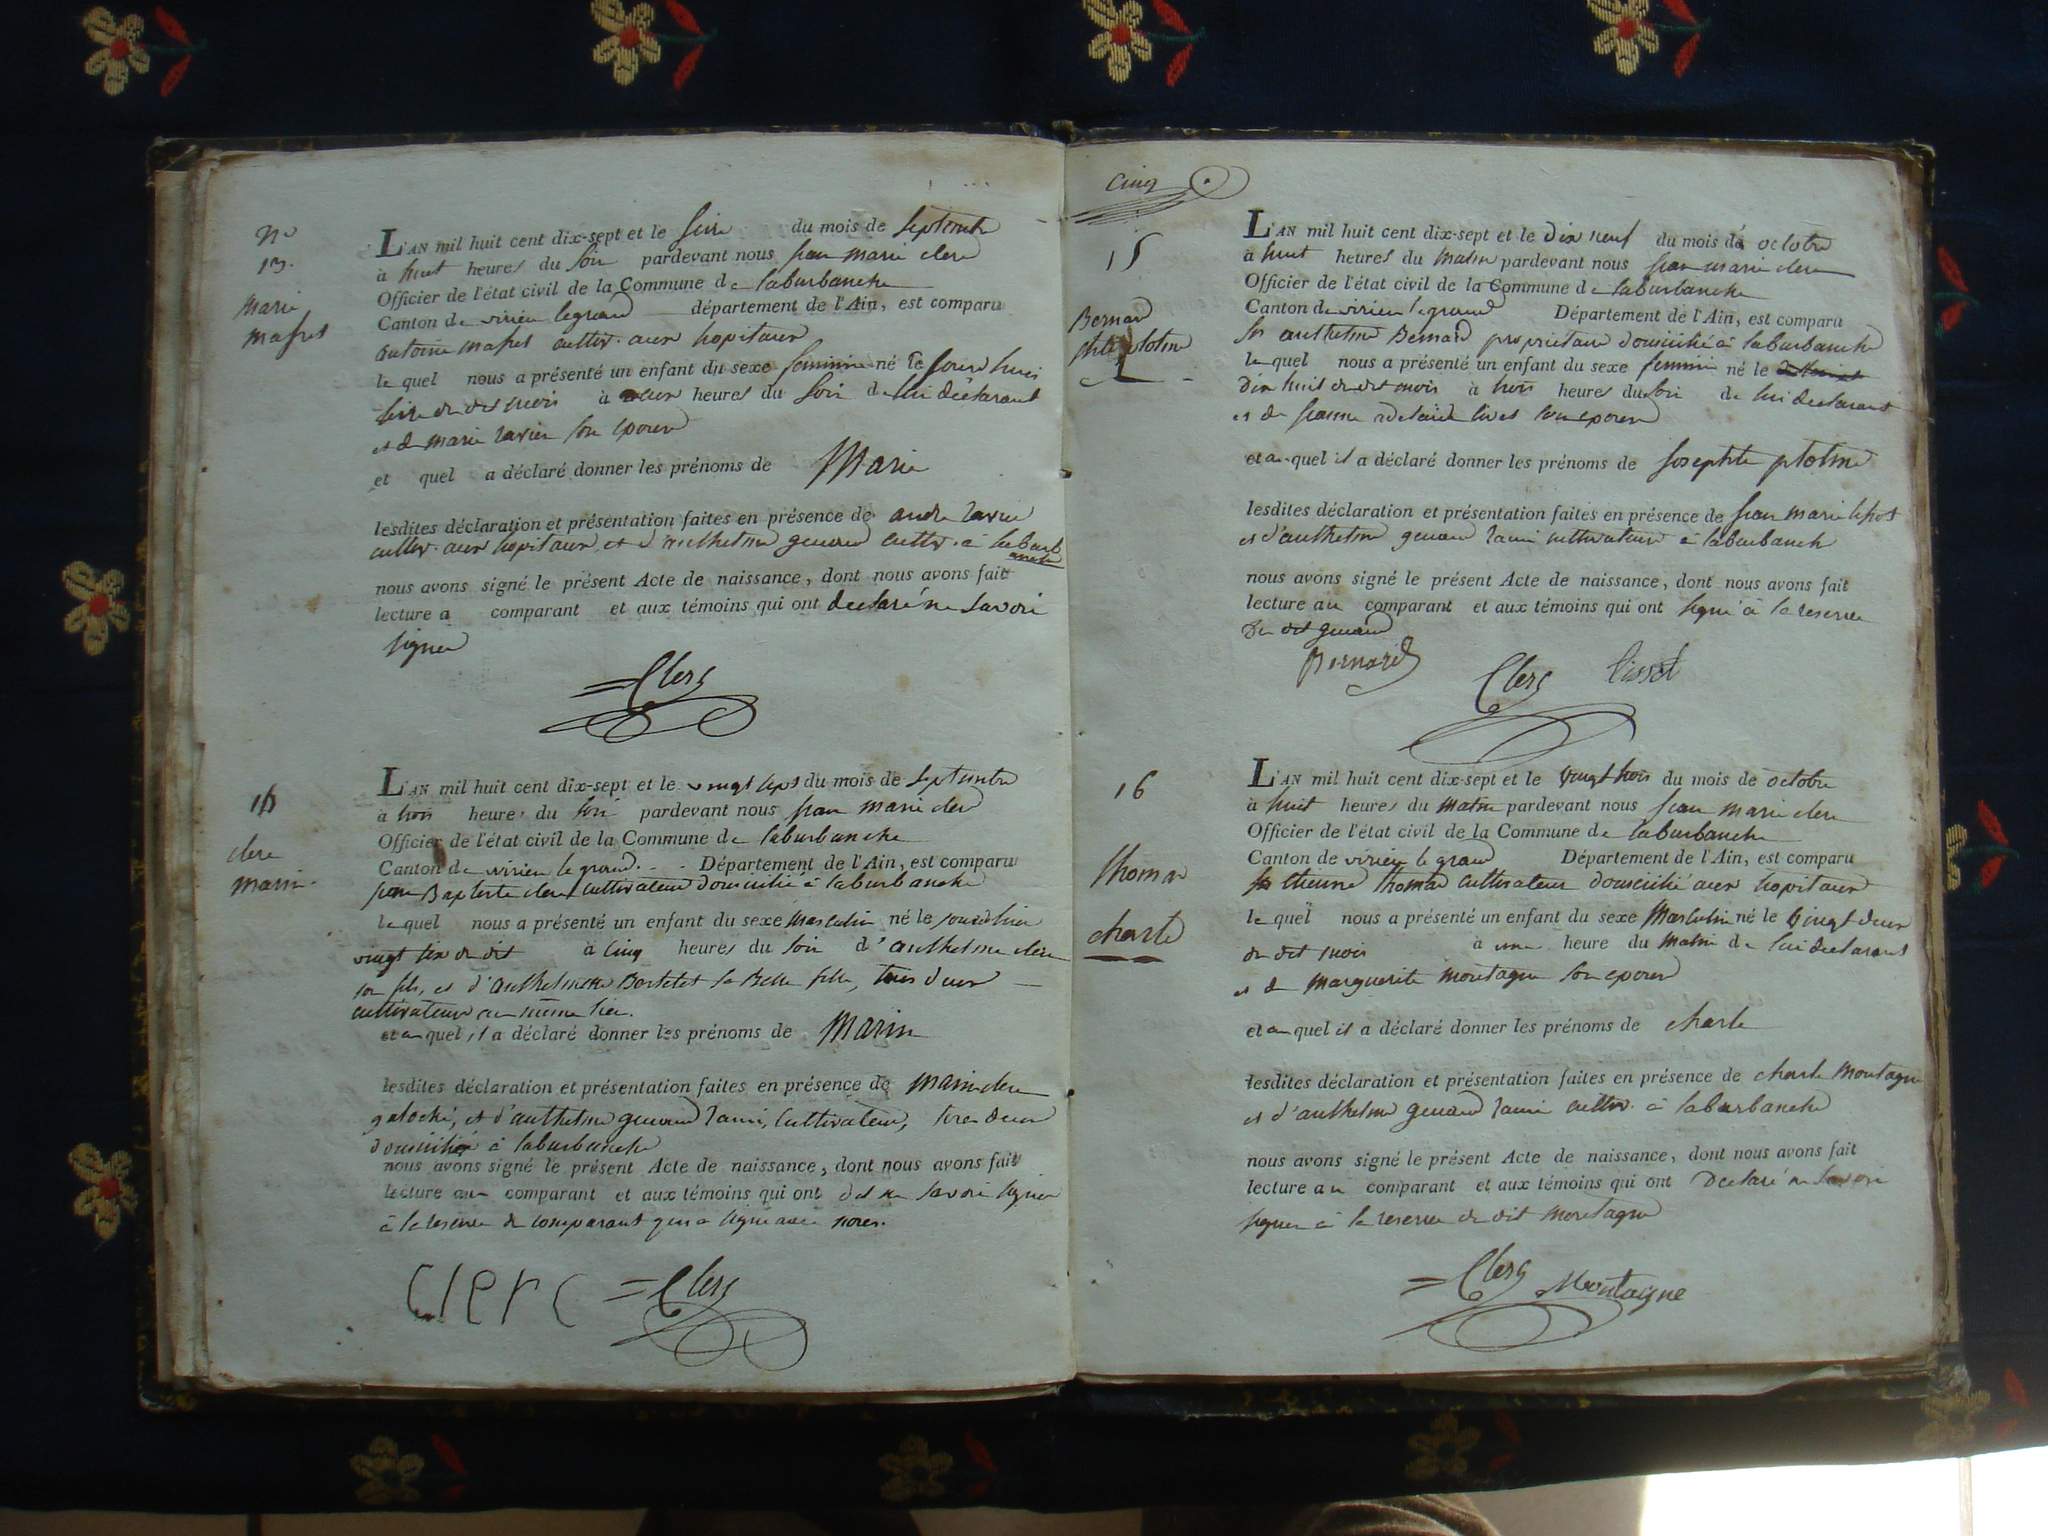 N°
13.
Marie
L'AN mil huit cent dix-sept et le seize du mois de septembre
à huit heures du soir pardevant nous jean marie clerc
Officier de l'état civil de la Commune de laburbanche
Canton de virieu legrand département de l'Ain, est comparu
antoine cultiv. aux hopitaux
le quel nous a présenté un enfant du sexe feminin né le jourdhuis
seize du dit mois à heures du soir de lui déclarant
et de marie ravier son epouse
et quel a déclaré donner les prénoms de Marie
lesdites déclaration et présentation faites en présence de andre ravier
cultiv. aux hopitaux et d'anthelme cultiv. à laburb
anche
nous avons signé le présent Acte de naissance, dont nous avons fait
lecture a comparant et aux témoins qui ont declaré ne savoir
signer
Clerc
14
clerc
marin.
L'AN mil huit cent dix-sept et le vingt sept du mois de septembre
à trois heure du soir pardevant nous jean marie clerc
Officier de l'état civil de la Commune de laburbanche
Canton de virieu le grand. - - Département de l'Ain, est comparu
jean Baptiste clerc cultivateur domicilié à laburbanche
le quel nous a présenté un enfant du sexe masculin né le jourdhier
vingt six du dit à cinq heures du soir d'anthelme clerc
son fils, et d'anthelmette Bertelet sa Belle fille, tous deux
cultivateurs au même lieu.
et au quel il a déclaré donner les prénoms de Marin
lesdites déclaration et présentation faites en présence de marin clerc
et d'anthelme cultivateur, tous deux
domiciliés à laburbanche
nous avons signé le présent Acte de naissance, dont nous avons fait
lecture au comparant et aux témoins qui ont dit ne savoir signer
à la reserve du comparant qui a signé avec nous.
Clerc Clerc
cinq
15
Bernard
L'AN mil huit cent dix-sept et le dix neuf du mois de octobre
à huit heures du matin pardevant nous jean marie clerc
Officier de l'état civil de la Commune de laburbanche
Canton de virieu le grand Département de l'Ain, est comparu
Sr anthelme Bernard proprietaire domicilié à laburbanche
le quel nous a présenté un enfant du sexe feminin né le
dix huit du dit mois à trois heures du soir de lui declarant
et de jeanne adelaide son epouse
et au quel il a déclaré donner les prénoms de Josephte
lesdites déclaration et présentation faites en présence de jean marie
et d'anthelme cultivateurs à laburbanche
nous avons signé le présent Acte de naissance, dont nous avons fait
lecture au comparant et aux témoins qui ont signé à la reserve
du dit
Bernard Clerc
16
thomas
charle
L'AN mil huit cent dix-sept et le vingt trois du mois de octobre
à huit heures du matin pardevant nous jean marie clerc
Officier de l'état civil de la Commune de laburbanche
Canton de virieu le grand Département de l'Ain, est comparu
Sr etienne thomas cultivateur domicilié aux hopitaux
le quel nous a présenté un enfant du sexe masculin né le vingt deux
du dit mois à une heure du matin de lui declarant
et de marguerite montagne son epouse
et au quel il a déclaré donner les prénoms de charle
lesdites déclaration et présentation faites en présence de charle montagne
et d'anthelme cultiv. à laburbanche
nous avons signé le présent Acte de naissance, dont nous avons fait
lecture au comparant et aux témoins qui ont Declaré ne savoir
signer à la reserve du dit montagne
Clerc Montagne